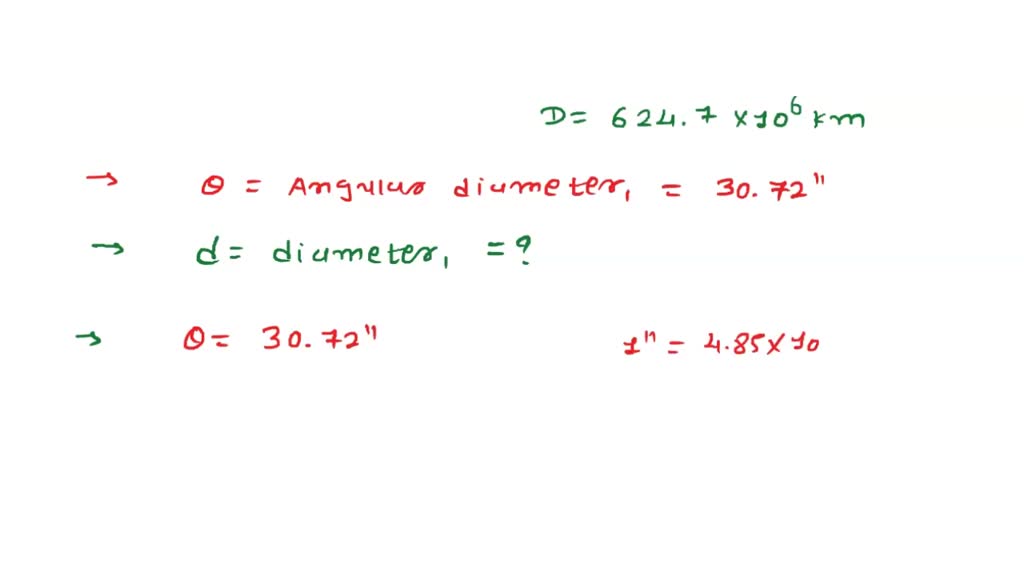 D= 624.7 ×10⁶ km
→ θ = Angular diameter, = 30.72"
→ d= diameter, =?
→ θ= 30.72" 1" = 4.85×10